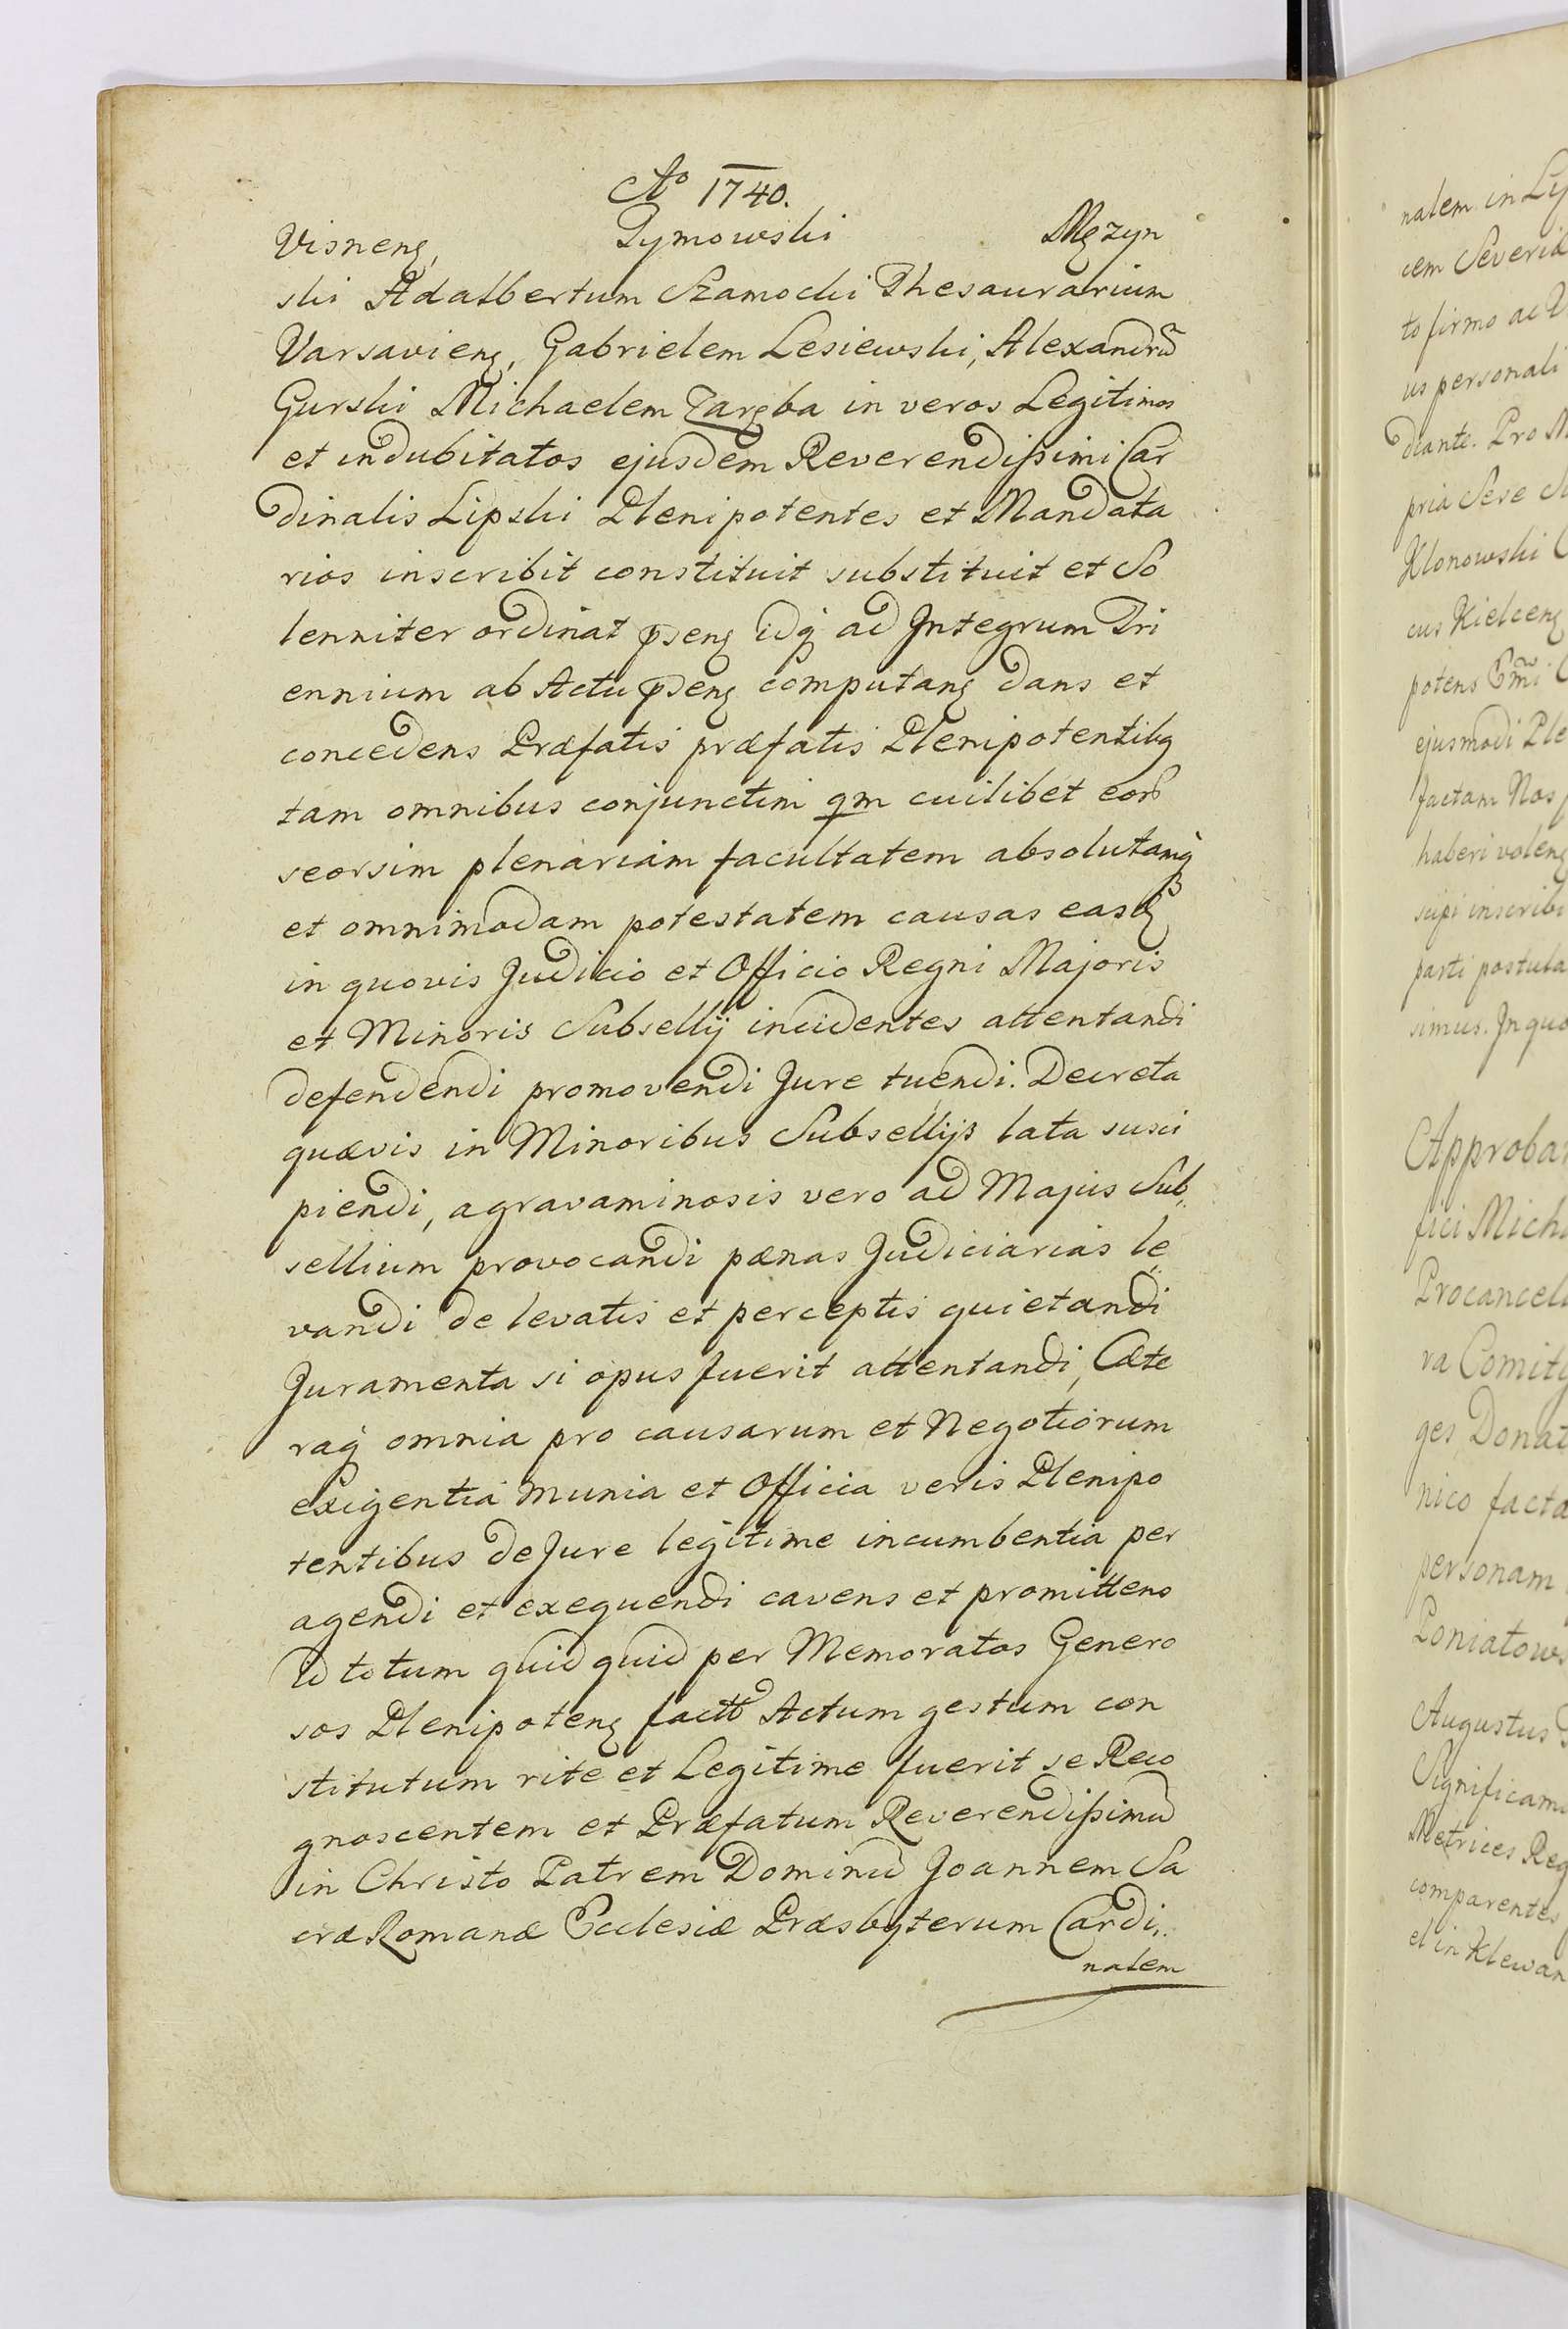 Aō 1740.
Visneng, Tymowski Męzyn
ski Adalbertum Szamocki Thesaurarium
Varsavieng, Gabrielem Lesiewski, Alexandrū
Gurski Michaelem Zaręba in veros Legitimos
et indubitatos ejusdem Reverendißimi Car
dinalis Lipski Plenipotentes et Mandata
rios inscribit constituit substituit et So
lenniter ordinat pseng idq ad Integrum Tri
ennium ab Actu pseng computang dans et
concedens Præfatis præfatis Plenipotentibq
tam omnibus conjunctim qm cuilibet eor
seorsim plenariam facultatem absolutamq
et omnimodam potestatem causas easq
in quovis Judicio et Officio Regni Majoris
et Minoris Subsellij incidentes attentandi
defendendi promovendi Jure tuendi. Decreta
quævis in Minoribus Subsellijs lata susci
piendi, agravaminosis vero ad Majus Sub,,
sellium provocandi pænas Judiciarias le,,
vandi de levatis et perceptis quietandi
Juramenta si opus fuerit attentandi, Cæte
raq omnia pro causarum et Negotiorum
exigentia munia et Officia veris Plenipo
tentibus de Jure legitime incumbentia per
agendi et exequendi cavens et promittens
Id totum quid quid per Memoratos Genero
sos Plenipoteng factū Actum gestum con
stitutum rite et Legitime fuerit se Reco
gnoscentem et Præfatum Reverendißimū
in Christo Patrem Dominū Joannem Sa
cræ Romanæ Ecclesiæ Præsbyterum Cardi,,
nalem
natem in Ly
cem Severiæ
to firmo ac V
us personali
diante. Pro M
pria Sese S
Klonowski
cus Kielceng
potens Emi
ejusmodi Ple
factam Nos
haberi voleng
scipi inscribi
parti postula
simus. In quo
Approbat
fici Micha
Procancell
va Comitij
ges Donat
nico facta
personam
Poniatows
Augustus
Significam
Metrices Reg
comparentes
el in Klewan